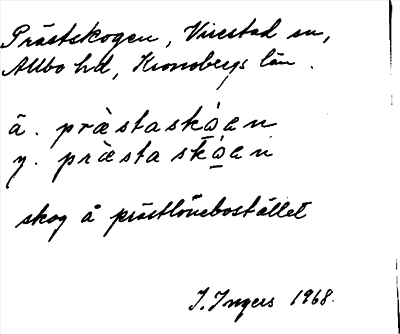 Prästskogen, Virestad sn,
Allbo hd, Kronobergs län.
ä. præ̀staskǫ̀aen
y. præ̀staskǫ̀aen
skog å prästlönebostället
I. Ingers 1968.